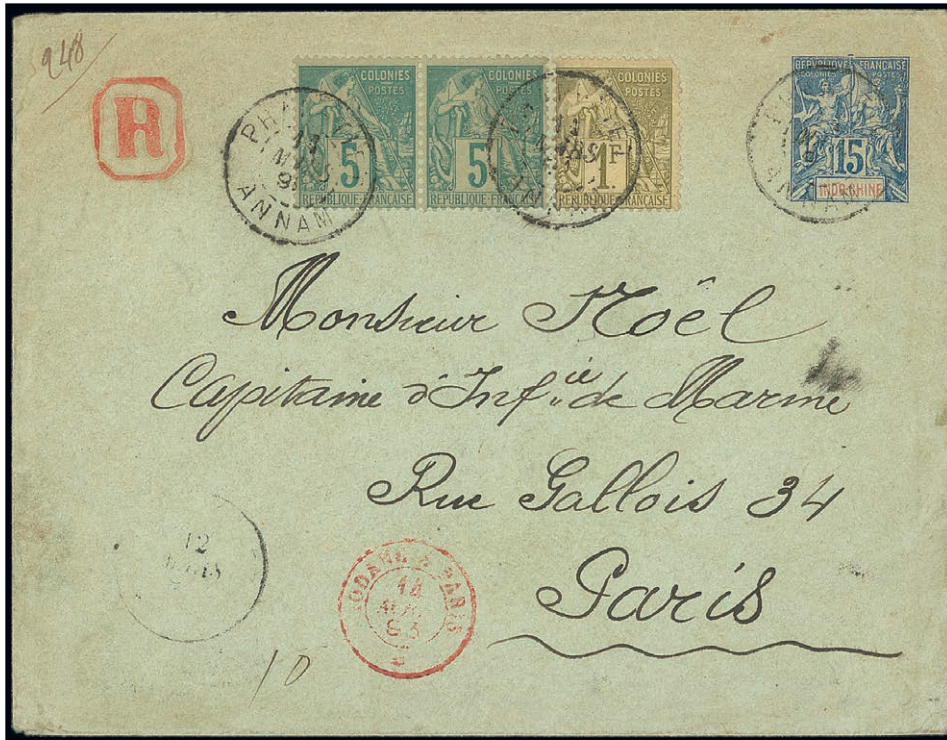 248
R
COLONIES
POSTES
5
REPUBLIQUE FRANÇAISE
COLONIES
POSTES
5
REPUBLIQUE FRANÇAISE
COLONIES
POSTES
1F
REPUBLIQUE FRANÇAISE
REPUBLIQUE FRANÇAISE
COLONIES POSTES
15
INDO-CHINE
11
ANNAM
11
ANNAM
ANNAM
Monsieur Noël
Capitaine d'Inf.ie de Marine
Rue Gallois 34
Paris
12
MARS
MODANE À PARIS
14
93
10